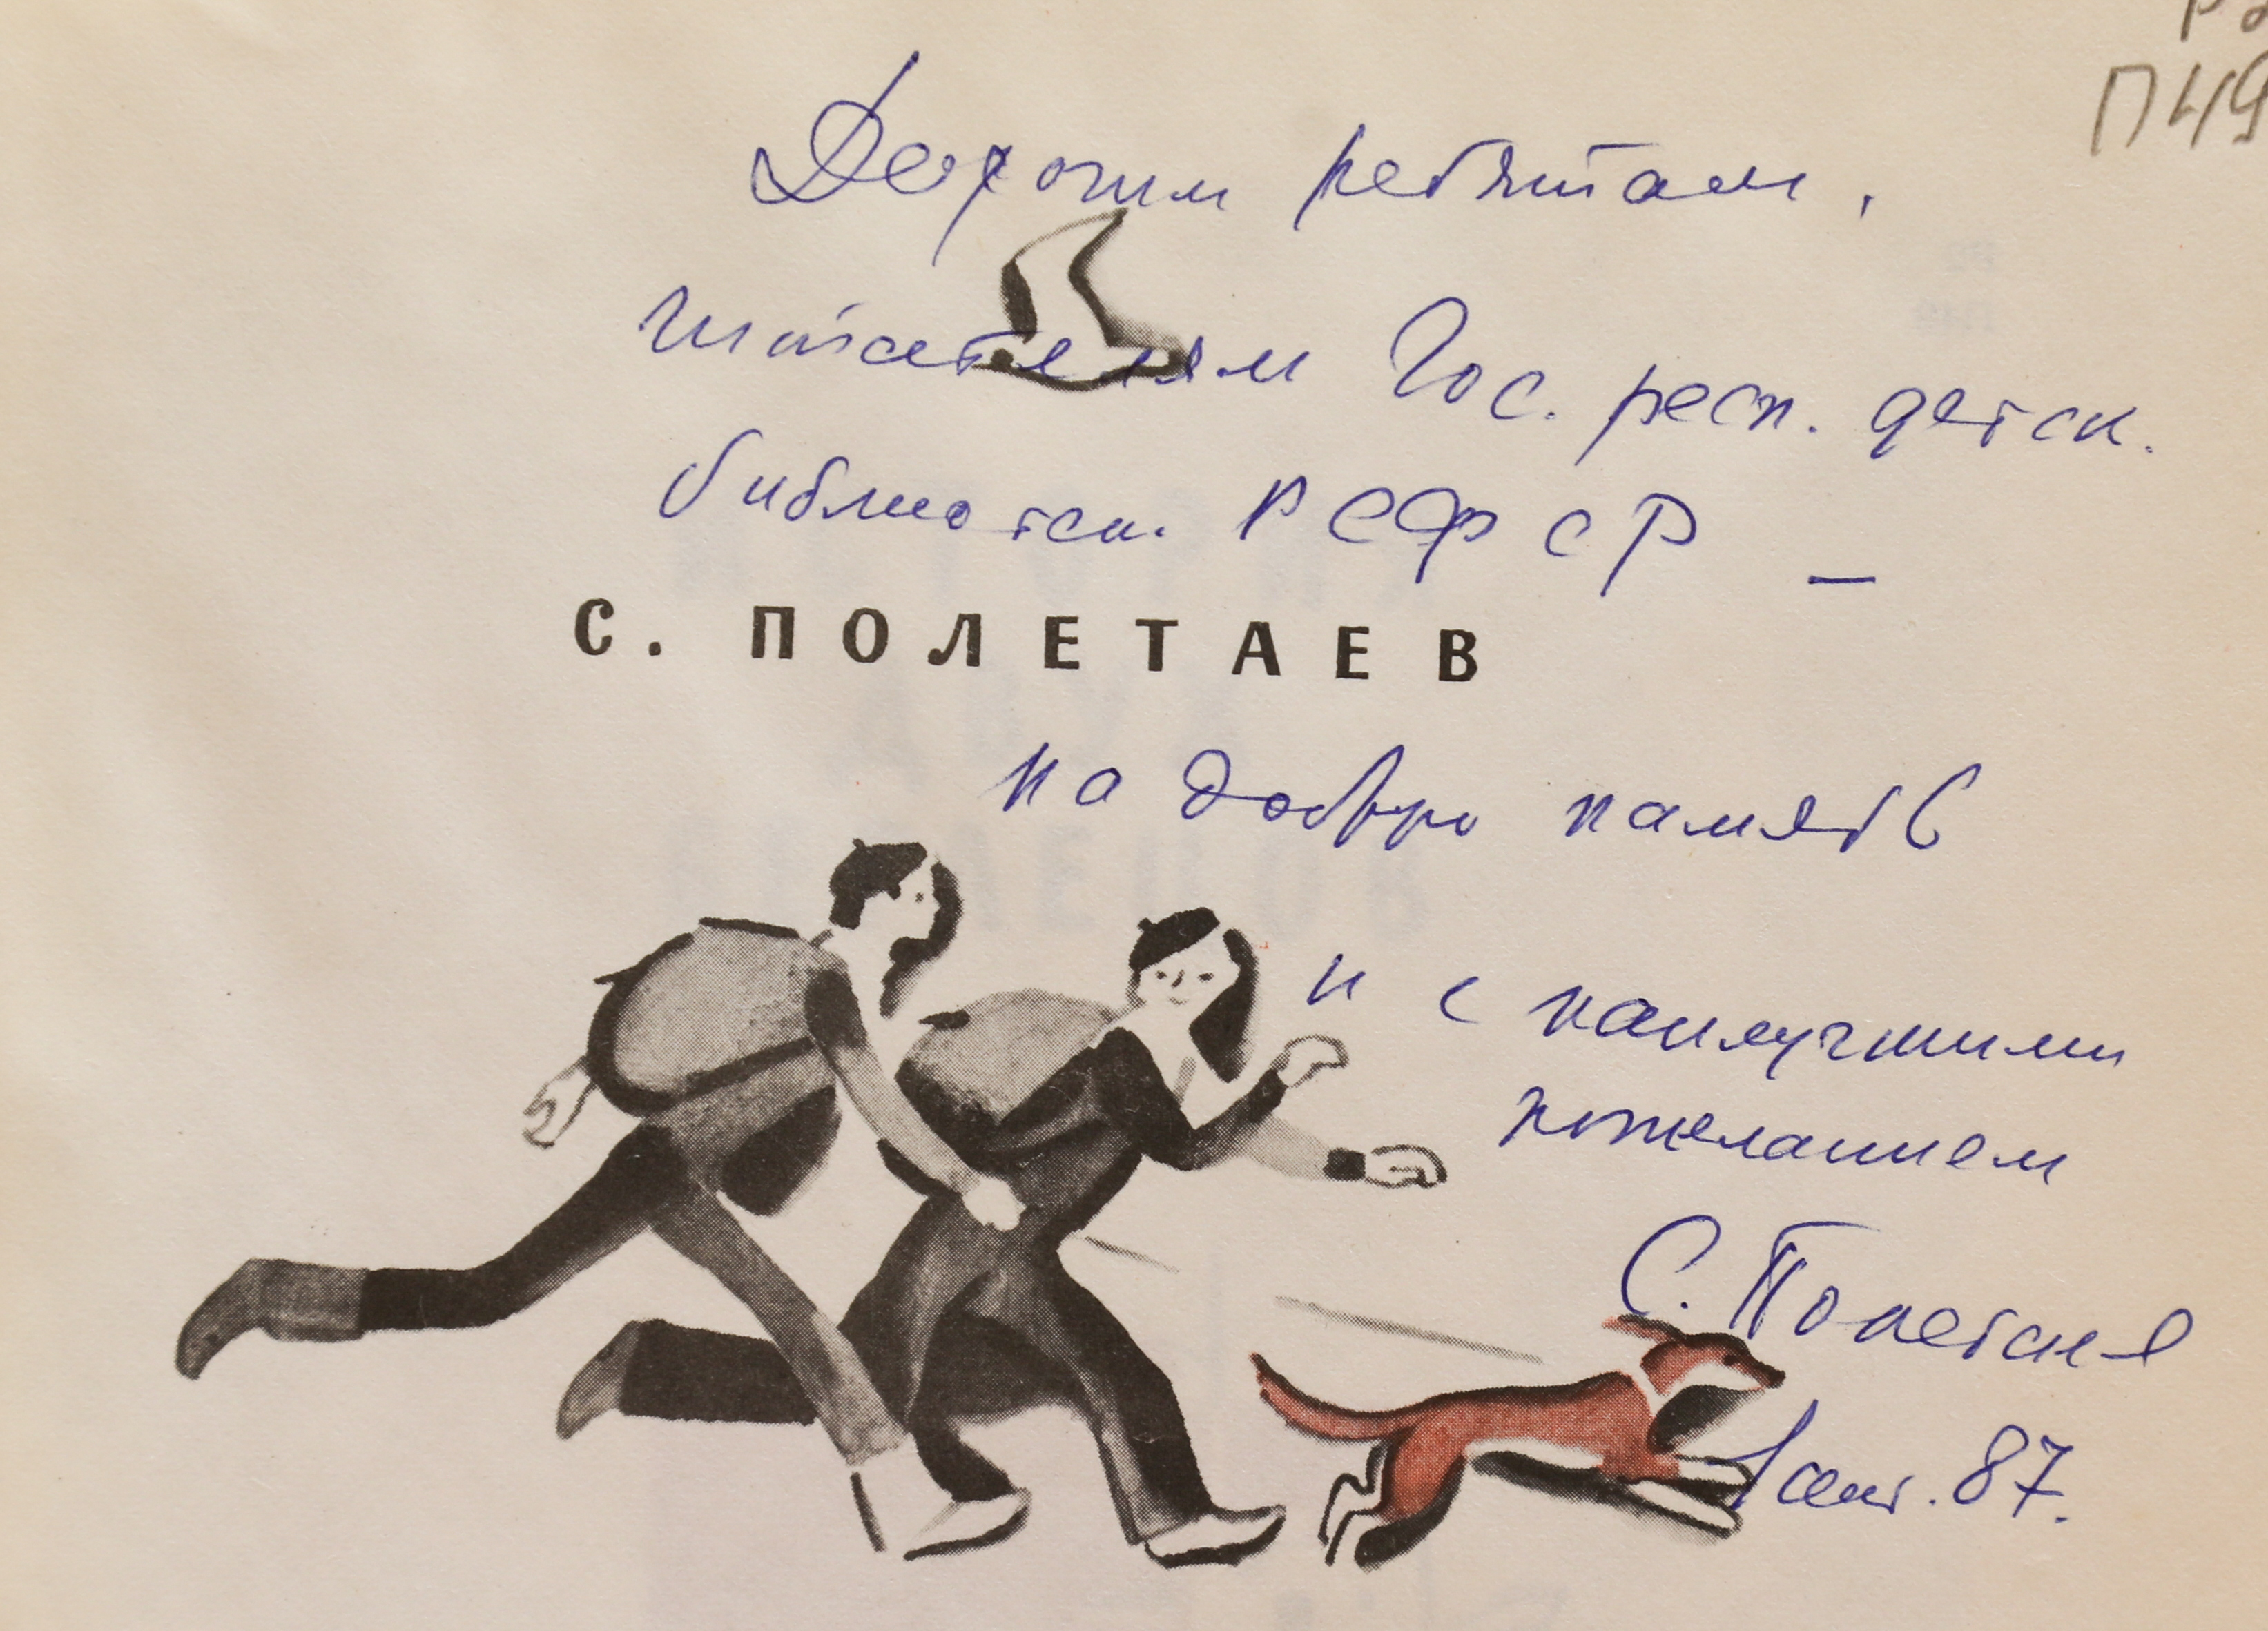 Р2
П49
Дорогим ребятам,
читателям Гос. респ. детск.
библиотек. РСФСР –
С. ПОЛЕТАЕВ
на добрую память
и с наилучшими
пожеланием
С. Полетаев
1 сент. 87.